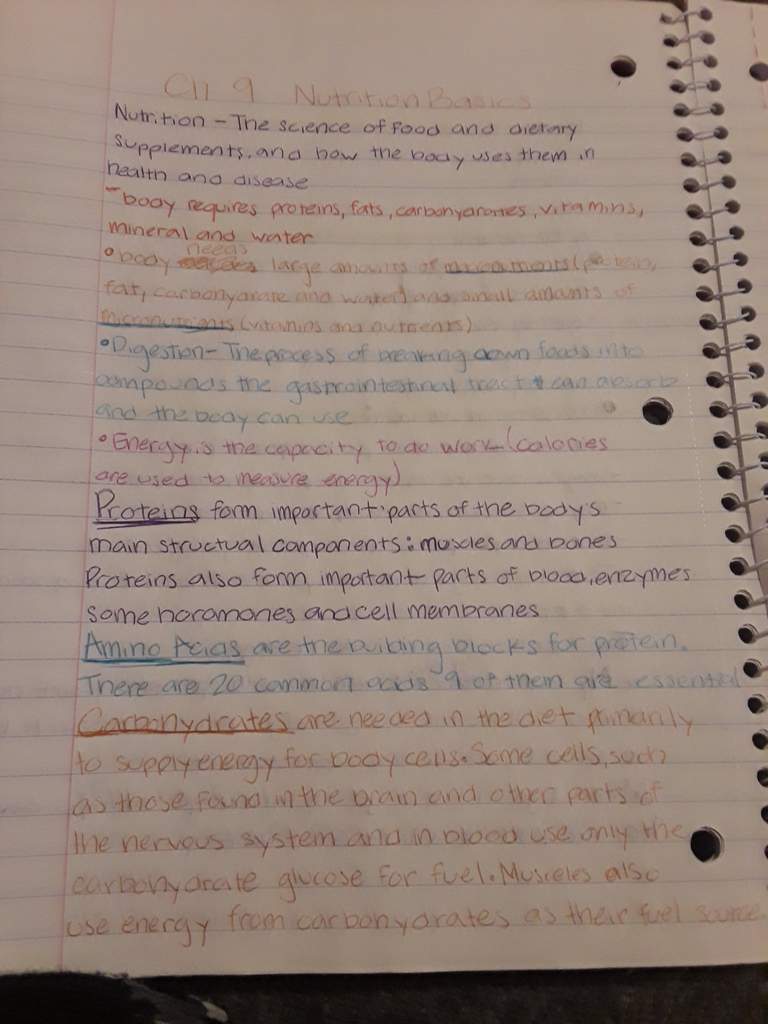 CH 9 Nutrition Basics
Nutrition - The science of Food and dietary
supplements, and how the body uses them in
health and disease
- body requires proteins, fats, carbohydrates, vitamins,
mineral and water
needs
• body large amounts of (protein,
fat, carbohydrate and water) and small amants of
micronutrients (vitamins and
• Digestion - The process of breaking down foods into
compounds the gastrointestinal tract can absorb
and the body can use
• Energy is the capacity to do work (calories
are used to measure energy)
Proteins form important parts of the body's
main structual components: muscles and bones
Proteins also form important parts of blood, enzymes
some horamones and cell membranes
Amino Acids are the building blocks for protein.
There are 20 common acids 9 of them are essential
Carbohydrates are needed in the diet primarily
to supply energy for body cells. Some cells, such
as those found in the brain and other parts of
the nervous system and in blood use only the
carbohydrate glucose for fuel. Musceles also
use energy from carbohydrates as their fuel source.